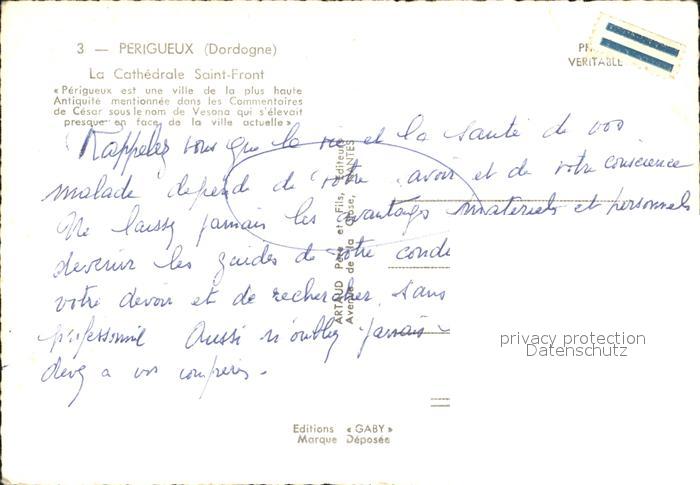 3 — PERIGUEUX (Dordogne)
La Cathédrale Saint-Front
« Périgueux est une ville de la plus haute
Antiquité mentionnée dans les Commentaires
de César sous le nom de Vesona qui s'élevait
presque en face de la ville actuelle »
VERITABLE
Rappelez vous que la vie et la santé de vos
malade depend de votre savoir et de votre conscience
Ne laissez jamais les avantages materiels et personnels
devenir les guides de votre condu
votre devoir et de rechercher sans
professionnel Aussi n'oubliez jamais
devez a vos confrères.
ARTAUD Père et Fils, Editeurs
Avenue de la Close, NANTES
privacy protection
Datenschutz
Editions « GABY »
Marque Déposée